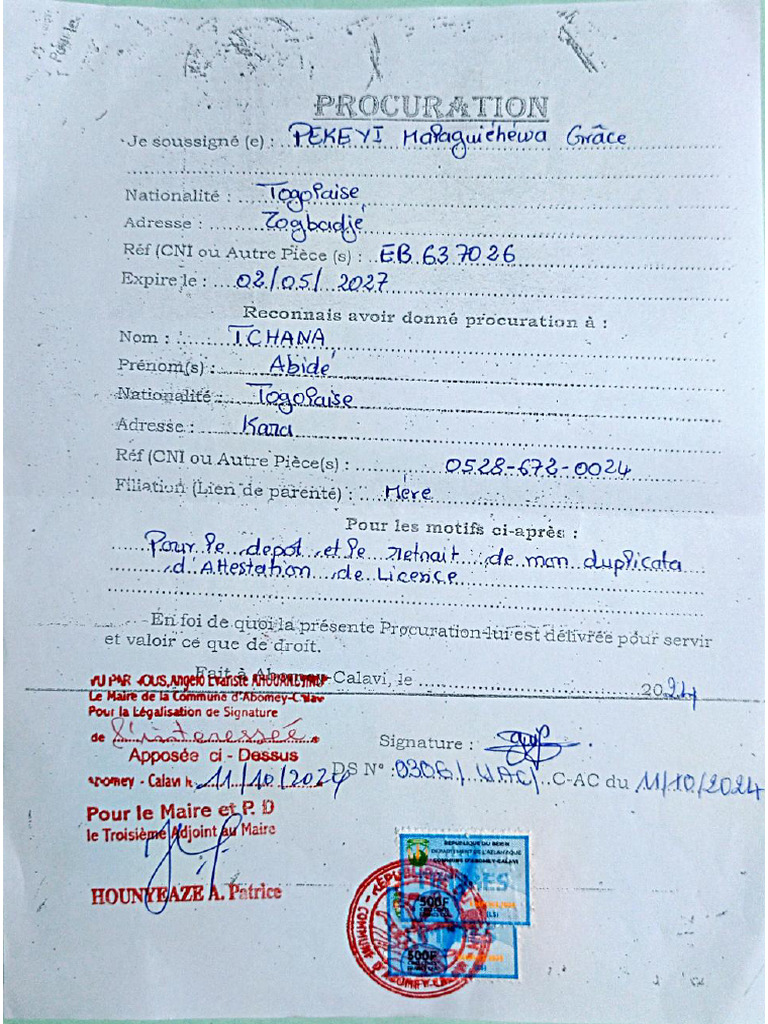 PROCURATION
Je soussigné (e) : PEKEYI Haraguiéhéwa Grâce
Nationalité : Togolaise
Adresse : Zogbadjé
Réf (CNI ou Autre Pièce (s) : EB 637026
Expire le : 02/05/2027
Reconnais avoir donné procuration à :
Nom : TCHANA
Prénom(s) : Abidé
Nationalité : Togolaise
Adresse : Kara
Réf (CNI ou Autre Pièce(s) : 0528-672-0024
Filiation (Lien de parenté) : Mère
Pour les motifs ci-après :
Pour le dépot et le retrait de mon duplicata
d'Attestation de Licence
En foi de quoi la présente Procuration lui est délivrée pour servir
et valoir ce que de droit.
Fait à Abomey-Calavi, le 2024
VU PAR NOUS, Angelo Evariste
Le Maire de la Commune d'Abomey-Calavi
Pour la Légalisation de Signature
de l'intéressée
Apposée ci - Dessus
Abomey - Calavi le 11/10/2024
Signature :
DS N° : 0306/ UAC/ C-AC du 11/10/2024
Pour le Maire et P. D
le Troisième Adjoint au Maire
HOUNYEAZE A. Patrice
REPUBLIQUE DU BENIN
DEPARTEMENT DE L'ATLANTIQUE
COMMUNE D'ABOMEY-CALAVI
500F
500F